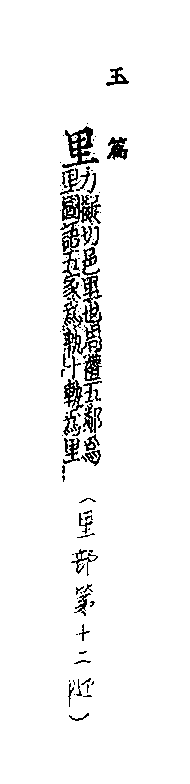 玉篇
里力擬切邑里也周禮五鄰為
里國語五家為軌十軌為里
(里部第十二)